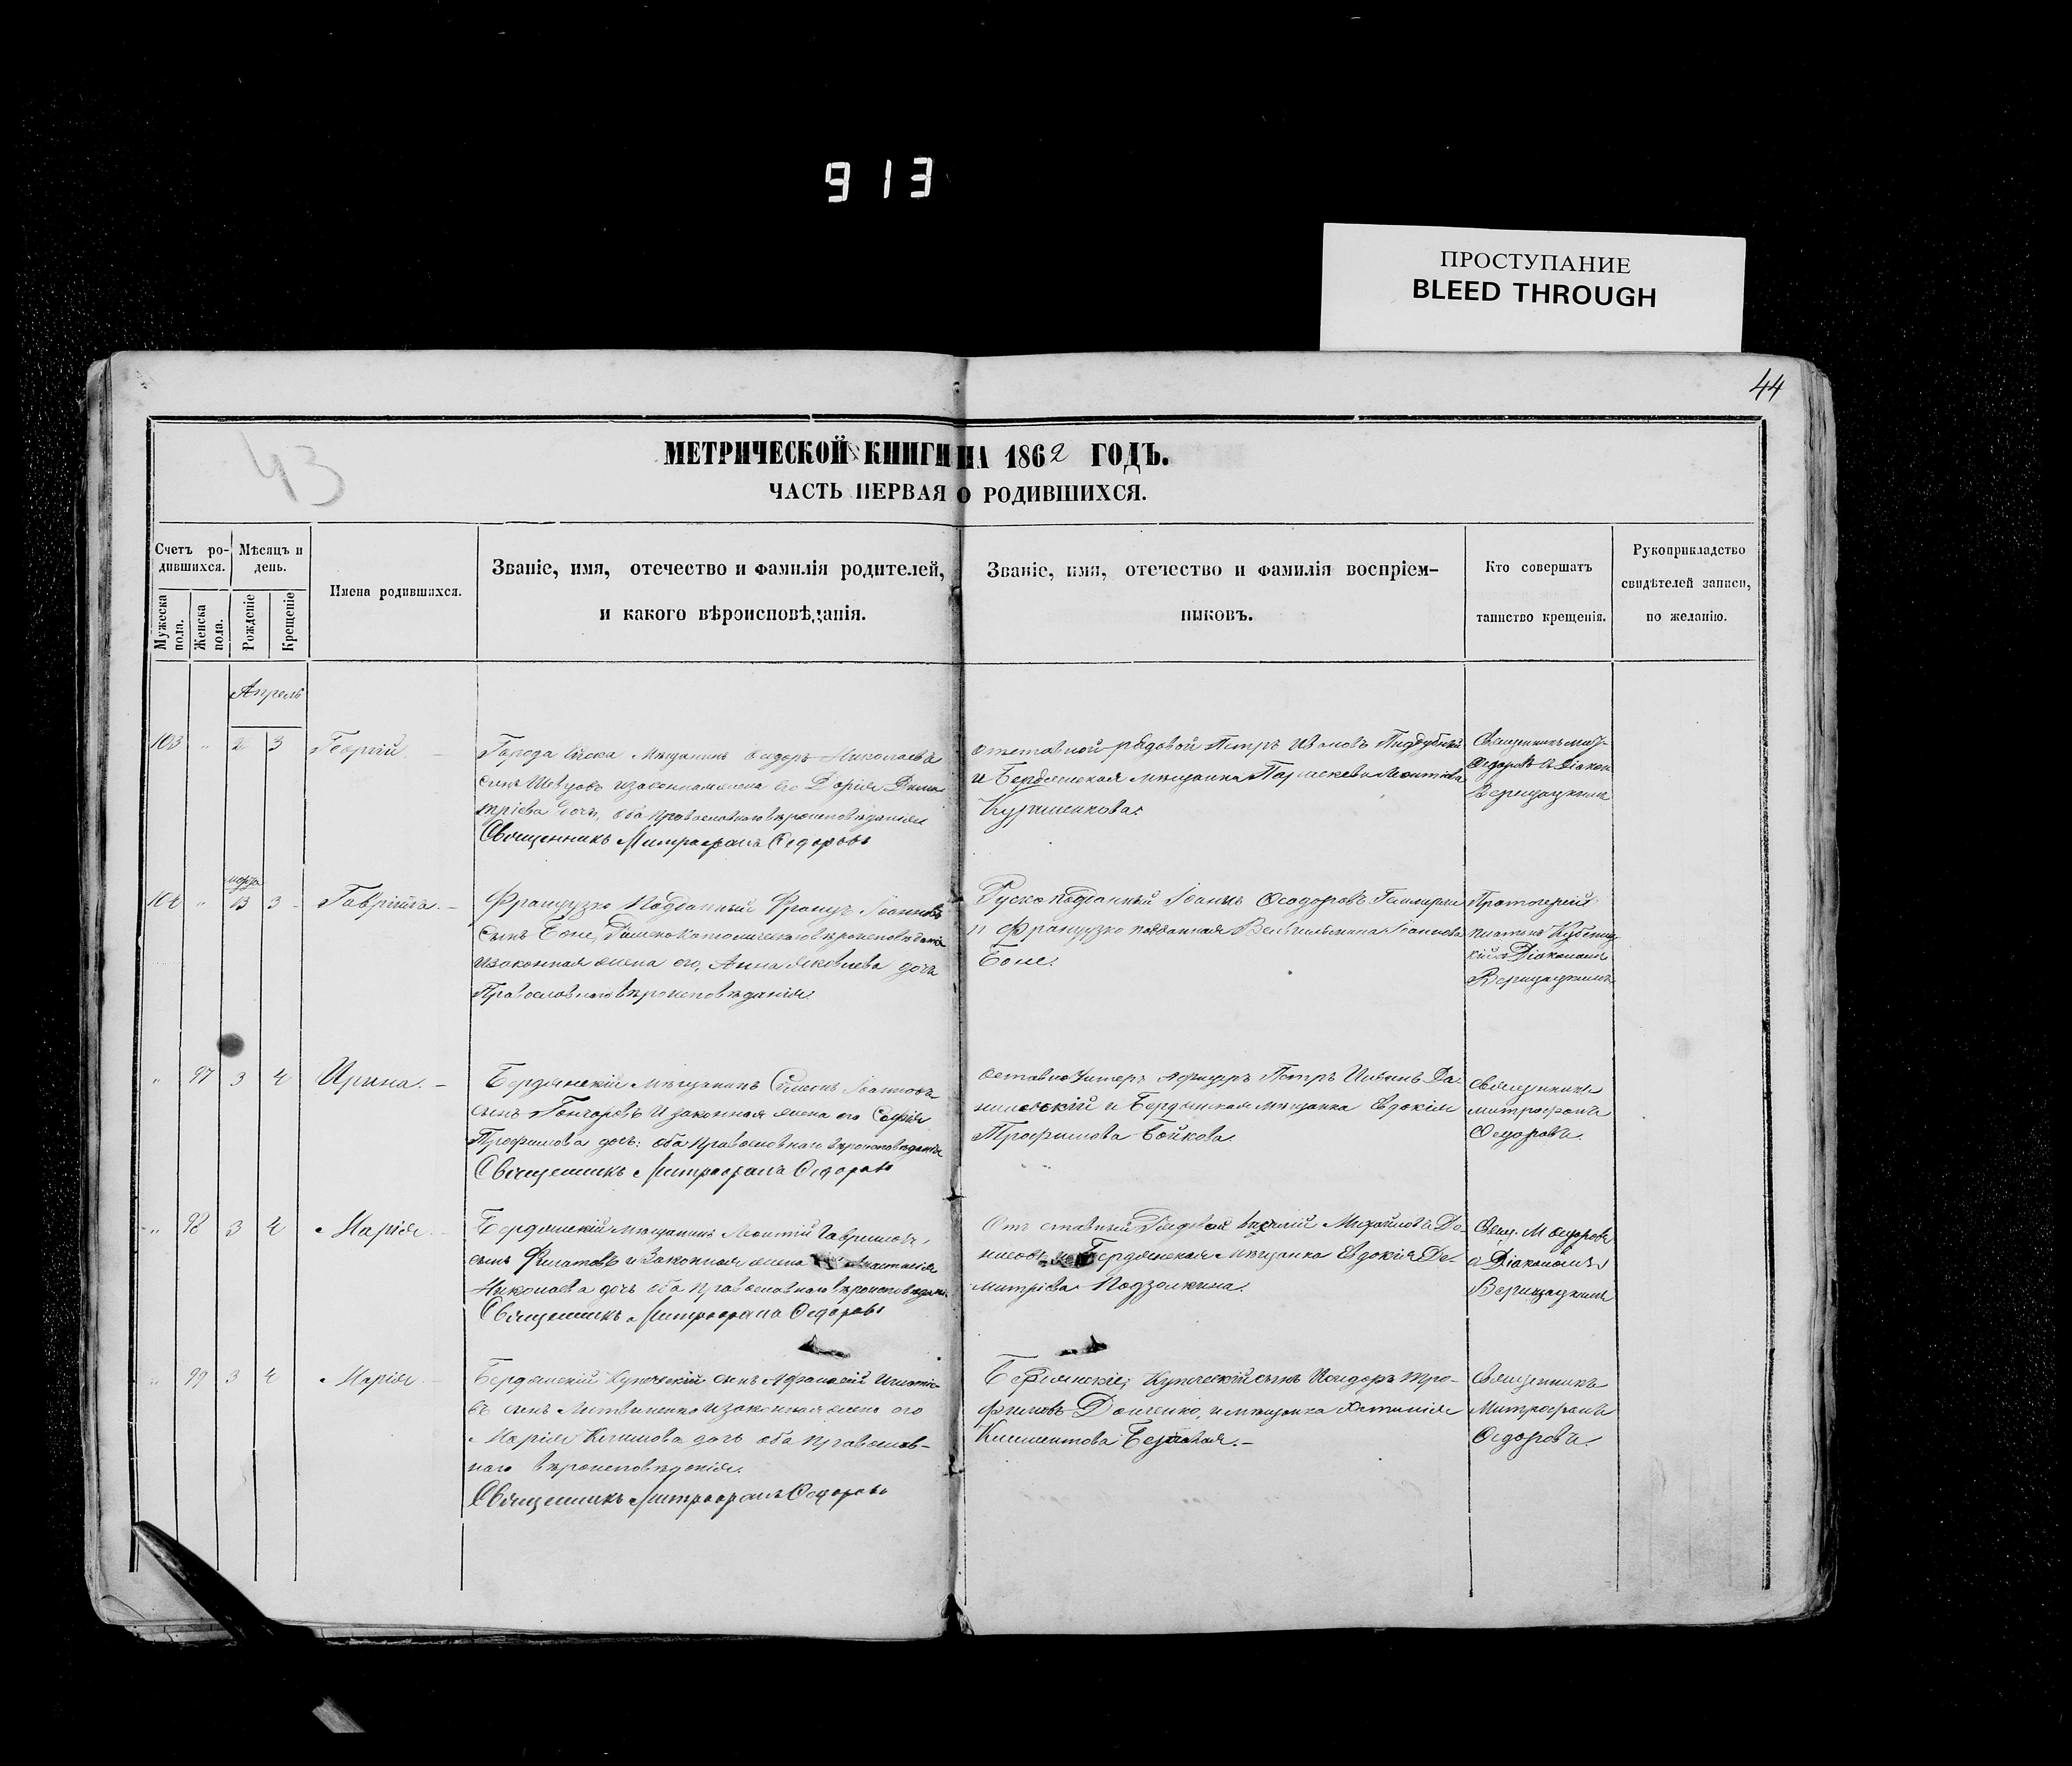 913
ПРОСТУПАНИЕ
BLEED THROUGH
44
43
МЕТРИЧЕСКОЙ КНИГИ НА 1862 ГОДЪ.
ЧАСТЬ ПЕРВАЯ О РОДИВШИХСЯ.
Счетъ ро-
дившихся.
Мужеска пола.
Женска пола.
Мѣсяцъ и
день.
Рожденіе
Крещеніе
Имена родившихся.
Званіе, имя, отечество и фамилія родителей,
и какого вѣроисповѣданія.
Званіе, имя, отечество и фамилія воспріем-
никовъ.
Кто совершатъ
таинство крещенія.
Рукоприкладство
свидѣтелей записи,
по желанію.
Апрель
103 " 2 3 Георгій
Города Мѣщанинъ Николаевъ
сынъ Шевцовъ и законная жена его Дарія Дими
тріева дочь, оба православнаго вѣроисповѣданія
Священникъ Митрофанъ Ѳедоровъ
отставной рядовой Петръ Ивановъ
и Бердянская мѣщанка Параскева Леонтіева
Священникъ
Ѳедоровъ съ Діакон
Верещацкимъ
104 " марта 13 3 Гавріилъ
Французко Подданный Францъ Іоанновъ
сынъ Боне, Римско Католическаго вѣроисповѣданія
и законная жена его, Анна Яковлева дочь
Православнаго вѣроисповѣданія.
Руско подданный Іоаннъ Ѳеодоровъ
и Французко подданная Вельгильмина Іоаннова
Боне.
Протоіерей
Діакономъ
Верещацкимъ
" 97 3 4 Ирина.
Бердянскій мѣщанинъ Симеонъ Іоанновъ
сынъ Гончаровъ и законная жена его Софія
Трофимова дочь: оба православнаго вѣроисповѣданія
Священникъ Митрофанъ Ѳедоровъ
Петръ Да-
нилевскій и Бердянская мѣщанка Евдокія
Трофимова Бойкова.
Священникъ
митрофанъ
Ѳедоровъ.
" 98 3 4 Марія
Бердянскій мѣщанинъ Леонтій Гавриловъ,
сынъ Филатовъ и законная жена Анастасія
Николаева дочь оба православнаго вѣроисповѣдан.
Священникъ Митрофанъ Ѳедоровъ
Отъ ставный Рядовой Василій Михайловъ Де-
нисовъ и Бердянская мѣщанка Евдокія Де-
митріева Подзолкина.
Свящ. М Ѳедоровъ
съ Діакономъ
Верещацкимъ
" 99 3 4 Марія
Бердянскій Купеческій сынъ Афанасій Игнатіе-
въ сынъ Литвиненко и законная жена его
Марія Климова дочь оба православ-
наго вѣроисповѣданія.
Священникъ Митрофанъ Ѳедоровъ
Бердянскіе; Купеческій сынъ Исидоръ Тро-
фимовъ Донченко, и мѣщанка
Климентова
Священникъ
Митрофанъ
Ѳедоровъ.